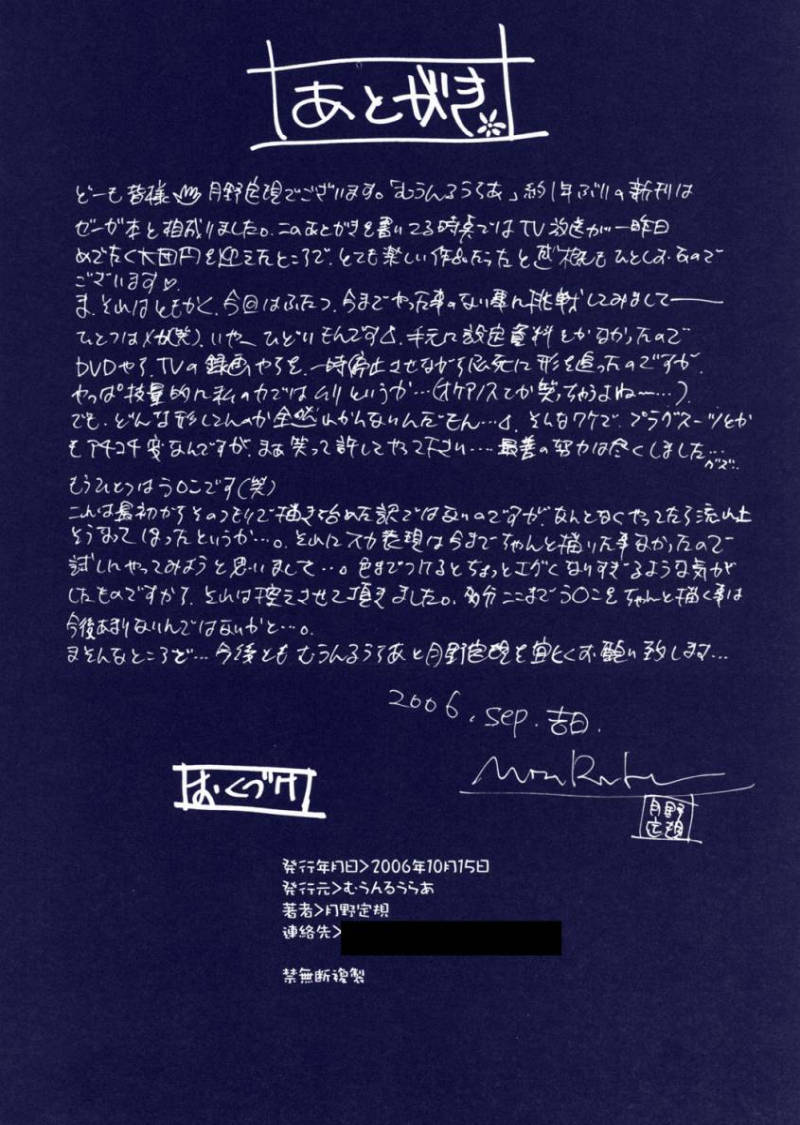 あとがき
どーも皆様 月野定規でございます。「むうんるうらあ」約1年ぶりの新刊は
ゼーガ本と相成りました。このあとがきを書いてる時点ではTV放送が一昨日
めでたく大団円を迎えたところで、とても楽しい作品だったと感慨もひとしおなので
ございます♡
ま、それはともかく、今回はふたつ、今までやった事のない事に挑戦してみまして――
ひとつはメカ(笑)、いや〜ひどいもんです 手元に設定資料とかなかったので
DVDやら、TVの録画やらを、一時停止させながら必死に形を追ったのですが、
やっぱ技量的に私の力ではムリというか…(オケアノスとか笑っちゃうよね〜…)
でも、どんな形してんのか全然わかんないんだもん… そんなワケで、プラグスーツとか
もアチコチ変なんですが、まあ笑って許してやって下さい…最善の努力は尽くしました…
もうひとつはう○こです(笑)
これは最初からそのつもりで描き始めた訳ではないのですが、なんとなくやってたら流れ上
そうなってしまったというか…。それにスカ表現は今までちゃんと描いた事なかったので
試しにやってみようと思いまして…。色までつけるとちょっとエグくなりすぎるような気が
したものですから、それは控えさせて頂きました。多分ここまでう○こをちゃんと描く事は
今後あまりないんではないかと…。
まそんなところで…今後とも むうんるうらあと月野定規を宜しくお願い致します…
2006. sep. 吉日.
月野
定規
おくづけ
発行年月日>2006年10月15日
発行元>むうんるうらあ
著者>月野定規
連絡先>
禁無断複製